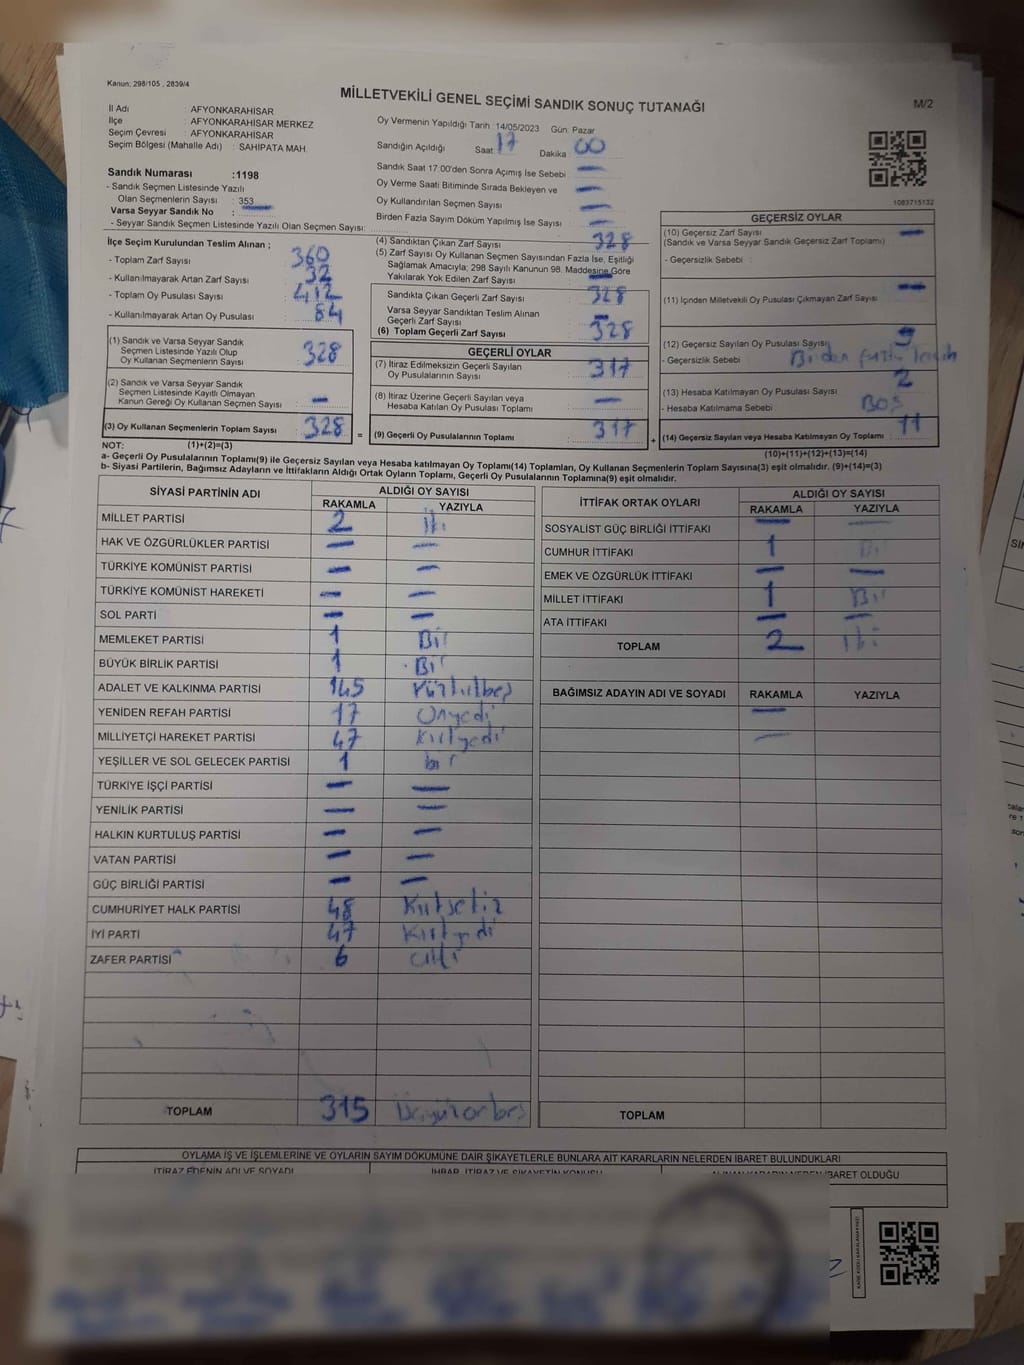 Kanun: 298/105 , 2839/4
MİLLETVEKİLİ GENEL SEÇİMİ SANDIK SONUÇ TUTANAĞI
M/2
İl Adı : AFYONKARAHİSAR
İlçe : AFYONKARAHİSAR MERKEZ
Seçim Çevresi : AFYONKARAHİSAR
Seçim Bölgesi (Mahalle Adı) : SAHIPATA MAH.
Oy Vermenin Yapıldığı Tarih : 14/05/2023 Gün: Pazar
Sandığın Açıldığı Saat 17 Dakika : 00
Sandık Saat 17:00'den Sonra Açımış İse Sebebi —
Oy Verme Saati Bitiminde Sırada Bekleyen ve —
Oy Kullandırılan Seçmen Sayısı —
Birden Fazla Sayım Döküm Yapılmış İse Sayısı —
1083715132
Sandık Numarası :1198
- Sandık Seçmen Listesinde Yazılı
Olan Seçmenlerin Sayısı : 353
Varsa Seyyar Sandık No : —
- Seyyar Sandık Seçmen Listesinde Yazılı Olan Seçmen Sayısı:
İlçe Seçim Kurulundan Teslim Alınan ;
- Toplam Zarf Sayısı : 360
- Kullanılmayarak Artan Zarf Sayısı : 32
- Toplam Oy Pusulası Sayısı : 412
- Kullanılmayarak Artan Oy Pusulası : 84
(1) Sandık ve Varsa Seyyar Sandık
Seçmen Listesinde Yazılı Olup
Oy Kullanan Seçmenlerin Sayısı 328
(2) Sandık ve Varsa Seyyar Sandık
Seçmen Listesinde Kayıtlı Olmayan
Kanun Gereği Oy Kullanan Seçmen Sayısı : —
(3) Oy Kullanan Seçmenlerin Toplam Sayısı : 328
(4) Sandıktan Çıkan Zarf Sayısı : 328
(5) Zarf Sayısı Oy Kullanan Seçmen Sayısından Fazla İse, Eşitliği
Sağlamak Amacıyla; 298 Sayılı Kanunun 98. Maddesine Göre
Yakılarak Yok Edilen Zarf Sayısı : —
Sandıkta Çıkan Geçerli Zarf Sayısı : 328
Varsa Seyyar Sandıktan Teslim Alınan
Geçerli Zarf Sayısı —
(6) Toplam Geçerli Zarf Sayısı : 328
GEÇERLİ OYLAR
(7) İtiraz Edilmeksizin Geçerli Sayılan
Oy Pusulalarının Sayısı : 317
(8) İtiraz Üzerine Geçerli Sayılan veya
Hesaba Katılan Oy Pusulası Toplamı : —
= (9) Geçerli Oy Pusulalarının Toplamı : 317
GEÇERSİZ OYLAR
(10) Geçersiz Zarf Sayısı : —
(Sandık ve Varsa Seyyar Sandık Geçersiz Zarf Toplamı)
- Geçersizlik Sebebi :
(11) İçinden Milletvekili Oy Pusulası Çıkmayan Zarf Sayısı —
(12) Geçersiz Sayılan Oy Pusulası Sayısı : 9
- Geçersizlik Sebebi : Birden fazla
(13) Hesaba Katılmayan Oy Pusulası Sayısı : 2
- Hesaba Katılmama Sebebi : BOŞ
+ (14) Geçersiz Sayılan veya Hesaba Katılmayan Oy Toplamı : 11
NOT: (1)+(2)=(3)
(10)+(11)+(12)+(13)=(14)
a- Geçerli Oy Pusulalarının Toplamı(9) ile Geçersiz Sayılan veya Hesaba katılmayan Oy Toplamı(14) Toplamları, Oy Kullanan Seçmenlerin Toplam Sayısına(3) eşit olmalıdır. (9)+(14)=(3)
b- Siyasi Partilerin, Bağımsız Adayların ve İttifakların Aldığı Ortak Oyların Toplamı, Geçerli Oy Pusulalarının Toplamına(9) eşit olmalıdır.
SİYASİ PARTİNİN ADI ALDIĞI OY SAYISI
RAKAMLA YAZIYLA
MİLLET PARTİSİ 2 İki
HAK VE ÖZGÜRLÜKLER PARTİSİ — —
TÜRKİYE KOMÜNİST PARTİSİ — —
TÜRKİYE KOMÜNİST HAREKETİ — —
SOL PARTİ — —
MEMLEKET PARTİSİ 1 Bir
BÜYÜK BİRLİK PARTİSİ 1 Bir
ADALET VE KALKINMA PARTİSİ 145 Yüzkırkbeş
YENİDEN REFAH PARTİSİ 17 Onyedi
MİLLİYETÇİ HAREKET PARTİSİ 47 Kırkyedi
YEŞİLLER VE SOL GELECEK PARTİSİ 1 bir
TÜRKİYE İŞÇİ PARTİSİ — —
YENİLİK PARTİSİ — —
HALKIN KURTULUŞ PARTİSİ — —
VATAN PARTİSİ — —
GÜÇ BİRLİĞİ PARTİSİ — —
CUMHURİYET HALK PARTİSİ 48 Kırksekiz
İYİ PARTİ 47 Kırkyedi
ZAFER PARTİSİ 6 altı
TOPLAM 315 Üçyüzonbeş
İTTİFAK ORTAK OYLARI ALDIĞI OY SAYISI
RAKAMLA YAZIYLA
SOSYALİST GÜÇ BİRLİĞİ İTTİFAKI — —
CUMHUR İTTİFAKI 1 Bir
EMEK VE ÖZGÜRLÜK İTTİFAKI — —
MİLLET İTTİFAKI 1 Bir
ATA İTTİFAKI — —
TOPLAM 2 İki
BAĞIMSIZ ADAYIN ADI VE SOYADI RAKAMLA YAZIYLA
—
—
TOPLAM
OYLAMA İŞ VE İŞLEMLERİNE VE OYLARIN SAYIM DÖKÜMÜNE DAİR ŞİKAYETLERLE BUNLARA AİT KARARLARIN NELERDEN İBARET BULUNDUKLARI
İTİRAZ EDENİN ADI VE SOYADI İHBAR, İTİRAZ VE ŞİKAYETİN KONUSU ALINAN KARARIN NEDEN İBARET OLDUĞU